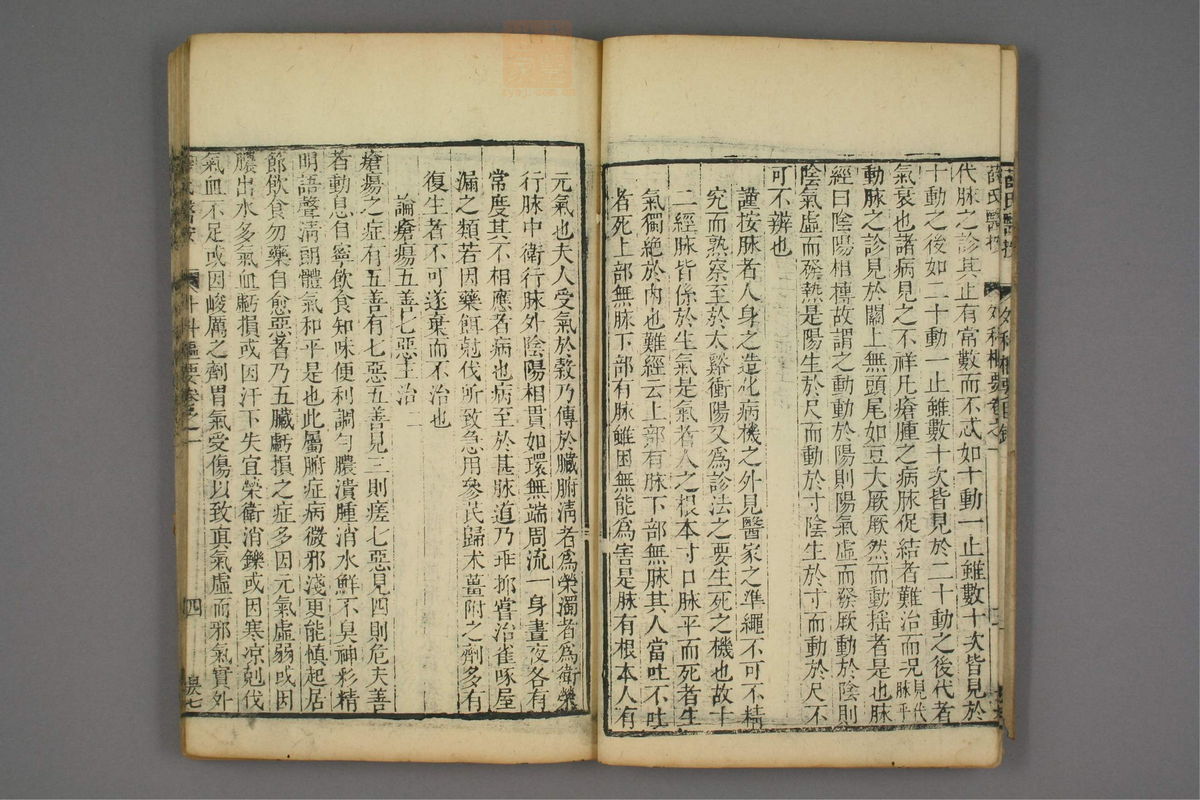 代脉之診其止有常數而不忒如十動一止雖數十次皆見於
十動之後如二十動一止雖數十次皆見於二十動之後代者
氣衰也諸病見之不祥凡瘡腫之病脉促結者難治而况見代脉乎
動脉之診見於關上無頭尾如豆大厥厥然而動揺者是也脉
經曰陰陽相摶故謂之動動於陽則陽氣虛而發厥動於陰則
陰氣虛而發熱是陽生於尺而動於寸陰生於寸而動於尺不
可不辨也
謹按脉者人身之造化病機之外見醫家之準繩不可不精
究而熟察至於太谿衝陽又爲診法之要生死之機也故十
二經脉皆係於生氣是氣者人之根本寸口脉平而死者生
氣獨絶於内也難經云上部有脉下部無脉其人當吐不吐
者死上部無脉下部有脉雖困無能爲害是脉有根本人有
元氣也夫人受氣於穀乃傳於臟腑淸者爲榮濁者爲衛榮
行脉中衛行脉外陰陽相貫如環無端周流一身晝夜各有
常度其不相應者病也病至於甚脉道乃乖抑嘗治雀啄屋
漏之類若因藥餌尅伐所致急用參芪歸术薑附之劑多有
復生者不可遂棄而不治也
論瘡瘍五善七惡主治二
瘡瘍之症有五善有七惡五善見三則瘥七惡見四則危夫善
者動息自寧飲食知味便利調勻膿潰腫消水鮮不臭神彩精
明語聲淸朗體氣和平是也此屬腑症病微邪淺更能慎起居
節飲食勿藥自愈惡者乃五臟虧損之症多因元氣虛弱或因
膿出水多氣血虧損或因汗下失宜榮衛消鑠或因寒凉尅伐
氣血不足或因峻厲之劑胃氣受傷以致眞氣虛而邪氣實外
薛氏醫按 外科樞要卷之一 四